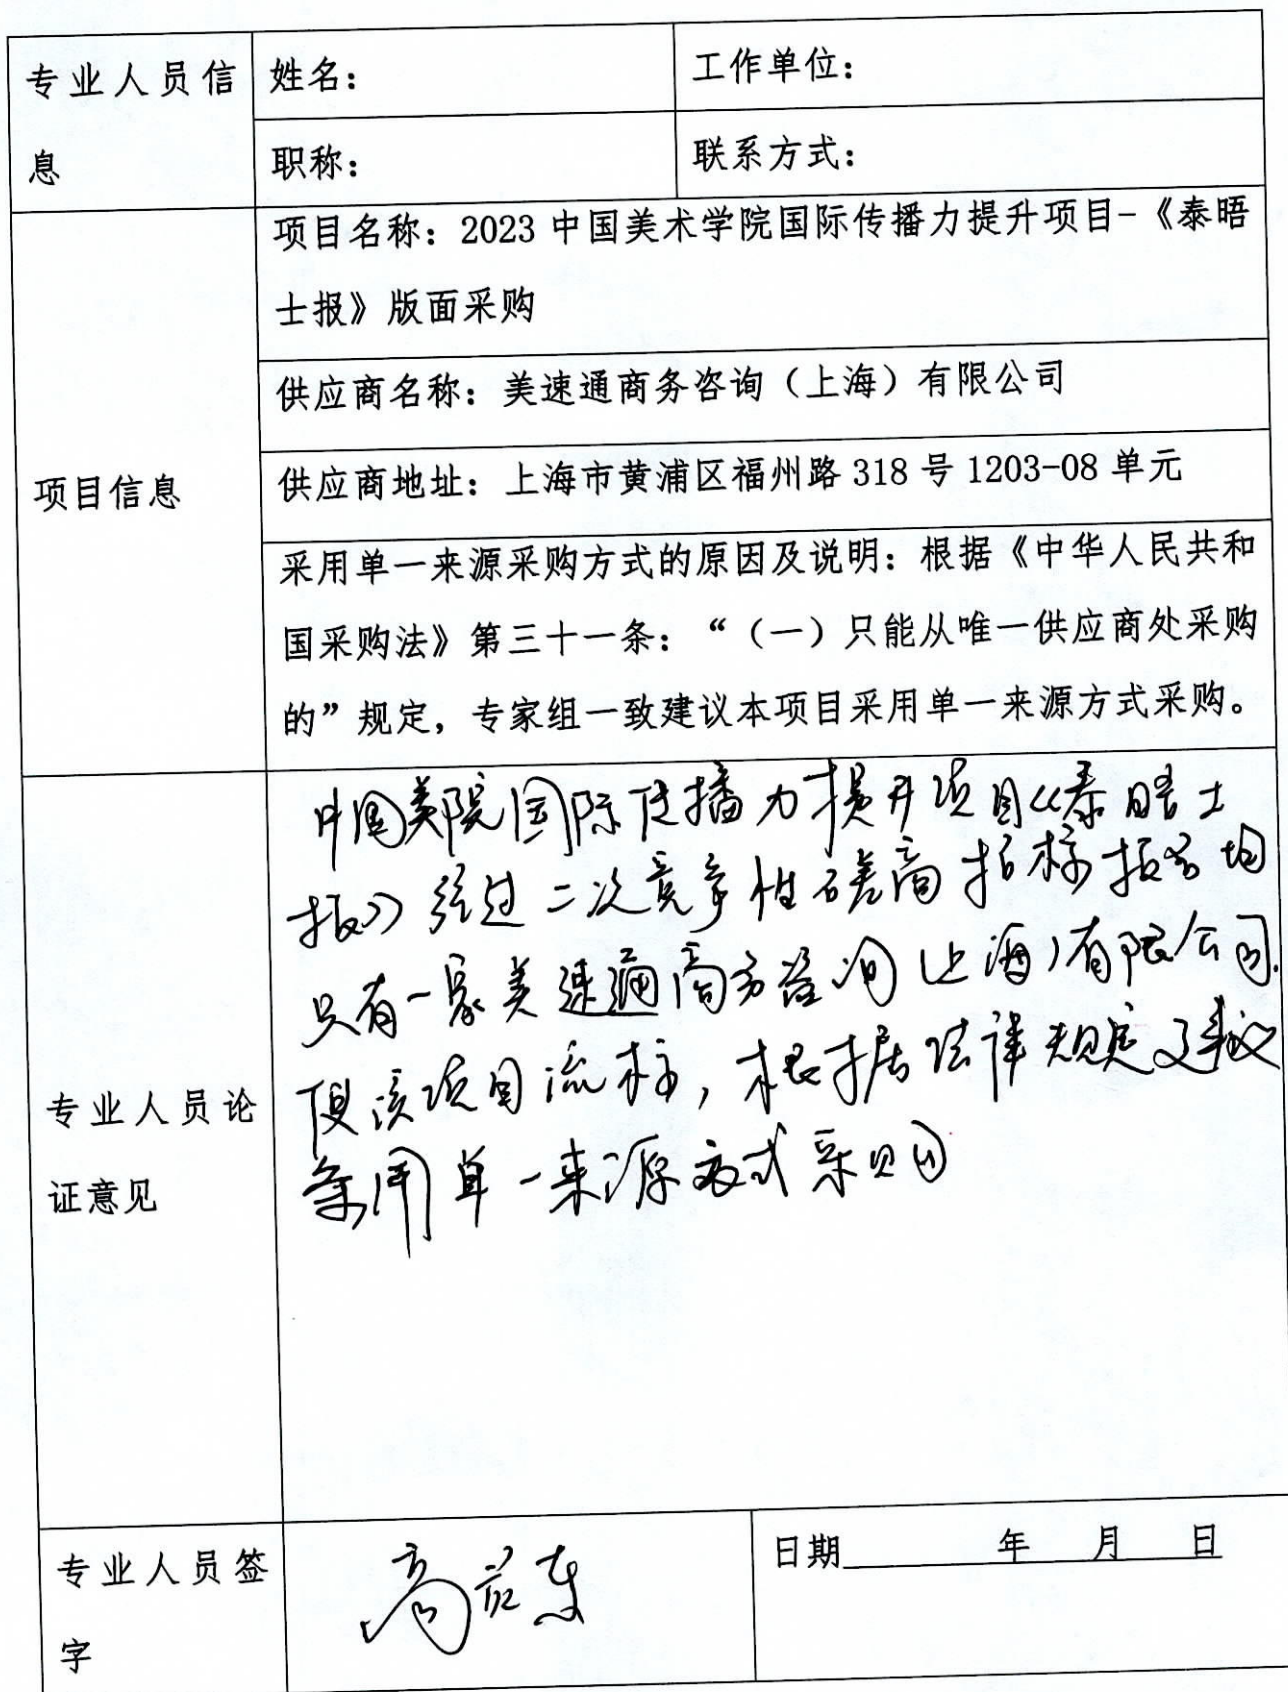 专业人员信
息
姓名：
工作单位：
职称：
联系方式：
项目信息
项目名称：2023 中国美术学院国际传播力提升项目-《泰晤
士报》版面采购
供应商名称：美速通商务咨询（上海）有限公司
供应商地址：上海市黄浦区福州路 318 号 1203-08 单元
采用单一来源采购方式的原因及说明：根据《中华人民共和
国采购法》第三十一条：“（一）只能从唯一供应商处采购
的”规定，专家组一致建议本项目采用单一来源方式采购。
专业人员论
证意见
中国美院国际传播力提升项目《泰晤士
报》经过二次竞争性磋商招标报名均
只有一家美速通商务咨询（上海）有限公司，
使该项目流标，根据法律规定建议
采用单一来源方式采购
专业人员签
字
日期 年 月 日